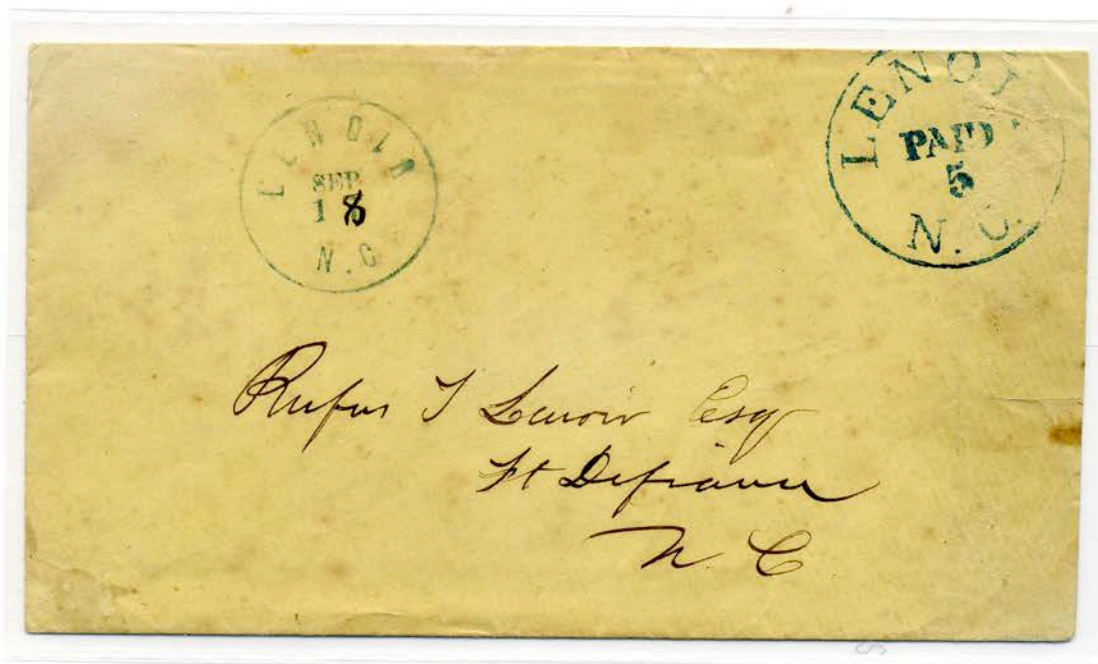 LENOIR
SEP
18
N.C
LENOI
PAID
5
N.C.
Rufus T Lenoir Esq
Ft Defiance
N. C